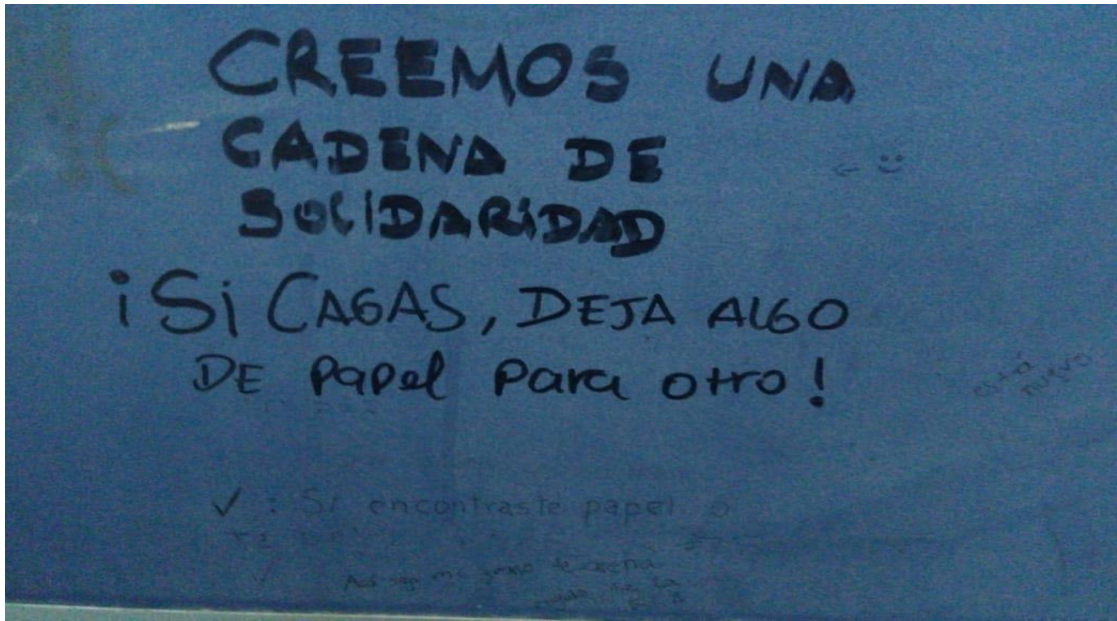 CREEMOS UNA
CADENA DE
SOLIDARIDAD
¡Si CAGAS, DEJA ALGO
DE PAPel Para otro!
está
nuevo
✓ : Si encontraste papel